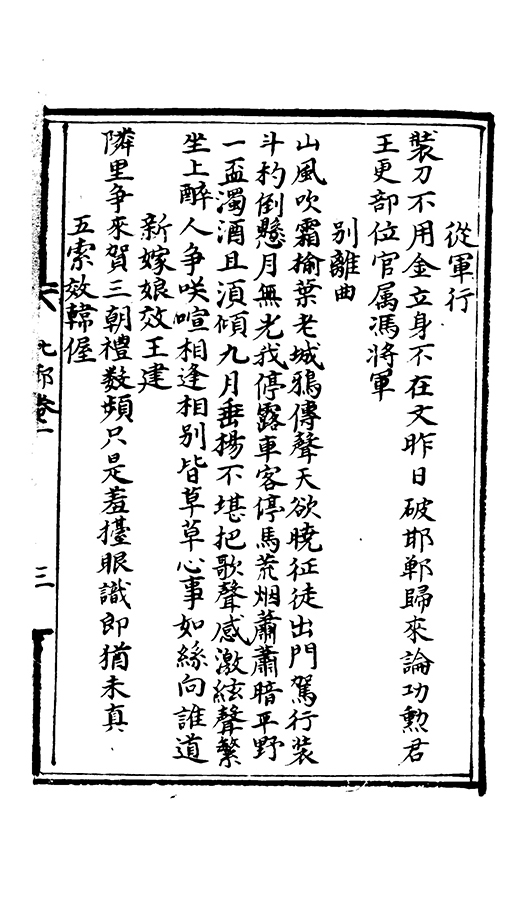 從軍行
裝刀不用金立身不在文昨日破邯鄲歸來論功勲君
王更部位官属馮將軍
别離曲
山風吹霜榆葉老城鴉傳聲天欲曉征徒出門駕行裝
斗杓倒懸月無光我停露車客停馬荒烟蕭蕭暗平野
一盃濁酒且湏傾九月垂揚不堪把歌聲感激絃聲繁
坐上醉人争咲喧相逢相别皆草草心事如絲向誰道
新嫁娘效王建
隣里争來賀三朝禮数頻只是羞擡眼識郎猶未真
五索效韓偓
卷一
三